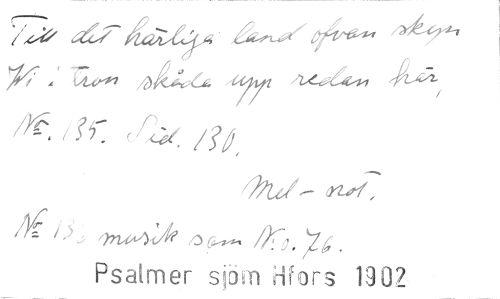 Till det härliga land ofvan skyn
Wi i tron skåda upp redan här,
No. 135. Sid. 130.
Mel-not.
No musik som No. 76.
Psalmer sjöm Hfors 1902